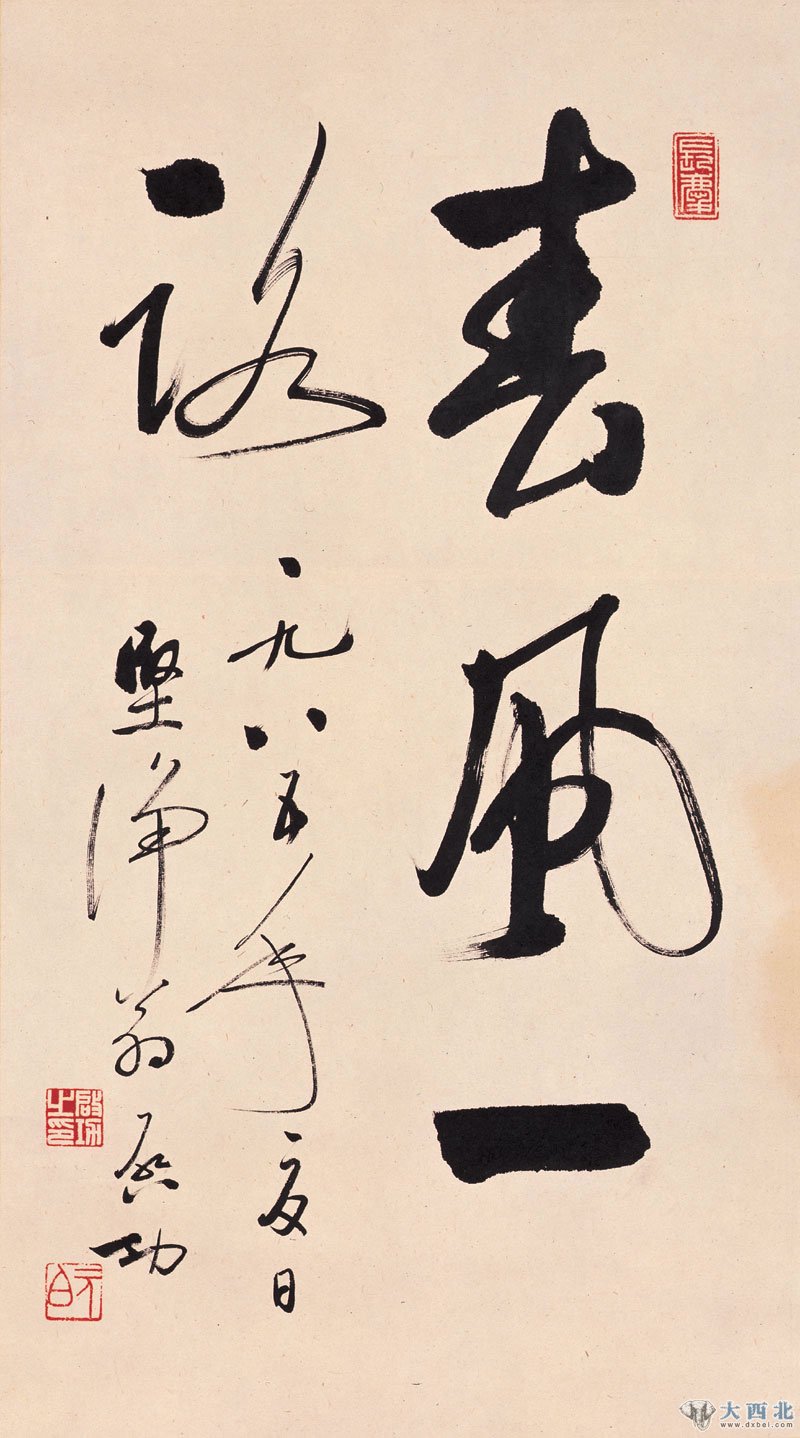 春風一
路
一九八五年夏日
堅淨翁启功
啟功之印
元白
大西北
www.dxbei.com